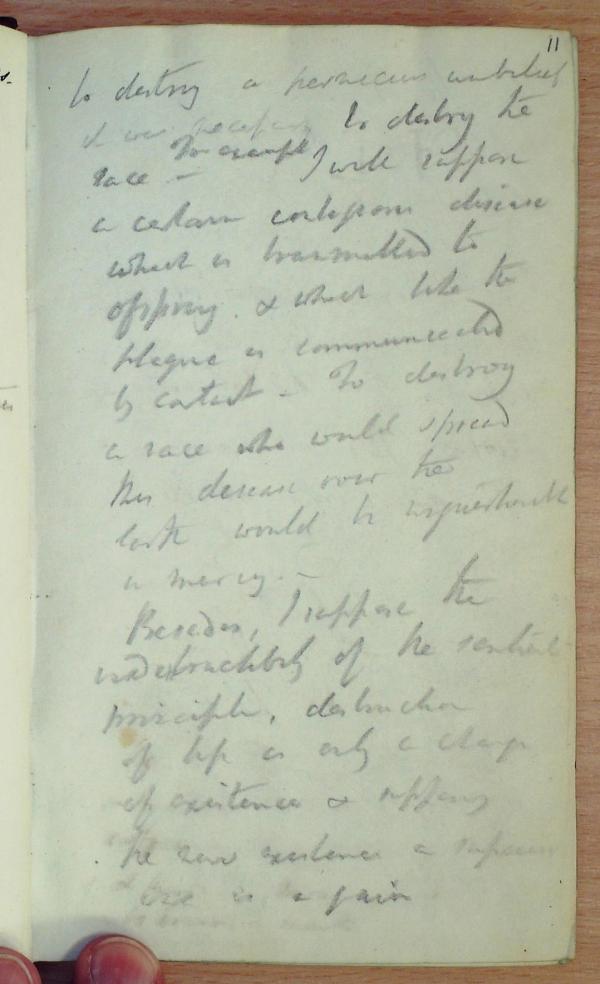 11
to destroy a pernicious unbelief
it was necessary to destroy the
race – For example I will suppose
a certain contagious disease
which is transmitted to
offspring & which like the
plague is communicated
by contact – To destroy
a race who would spread
this disease over the
earth would be unquestionable
a mercy. –
Besides, I suppose the
indestructibly of the sentient
principle, destruction
of life is only a change
of existence & supposing
the new existence a superior
one is a gain